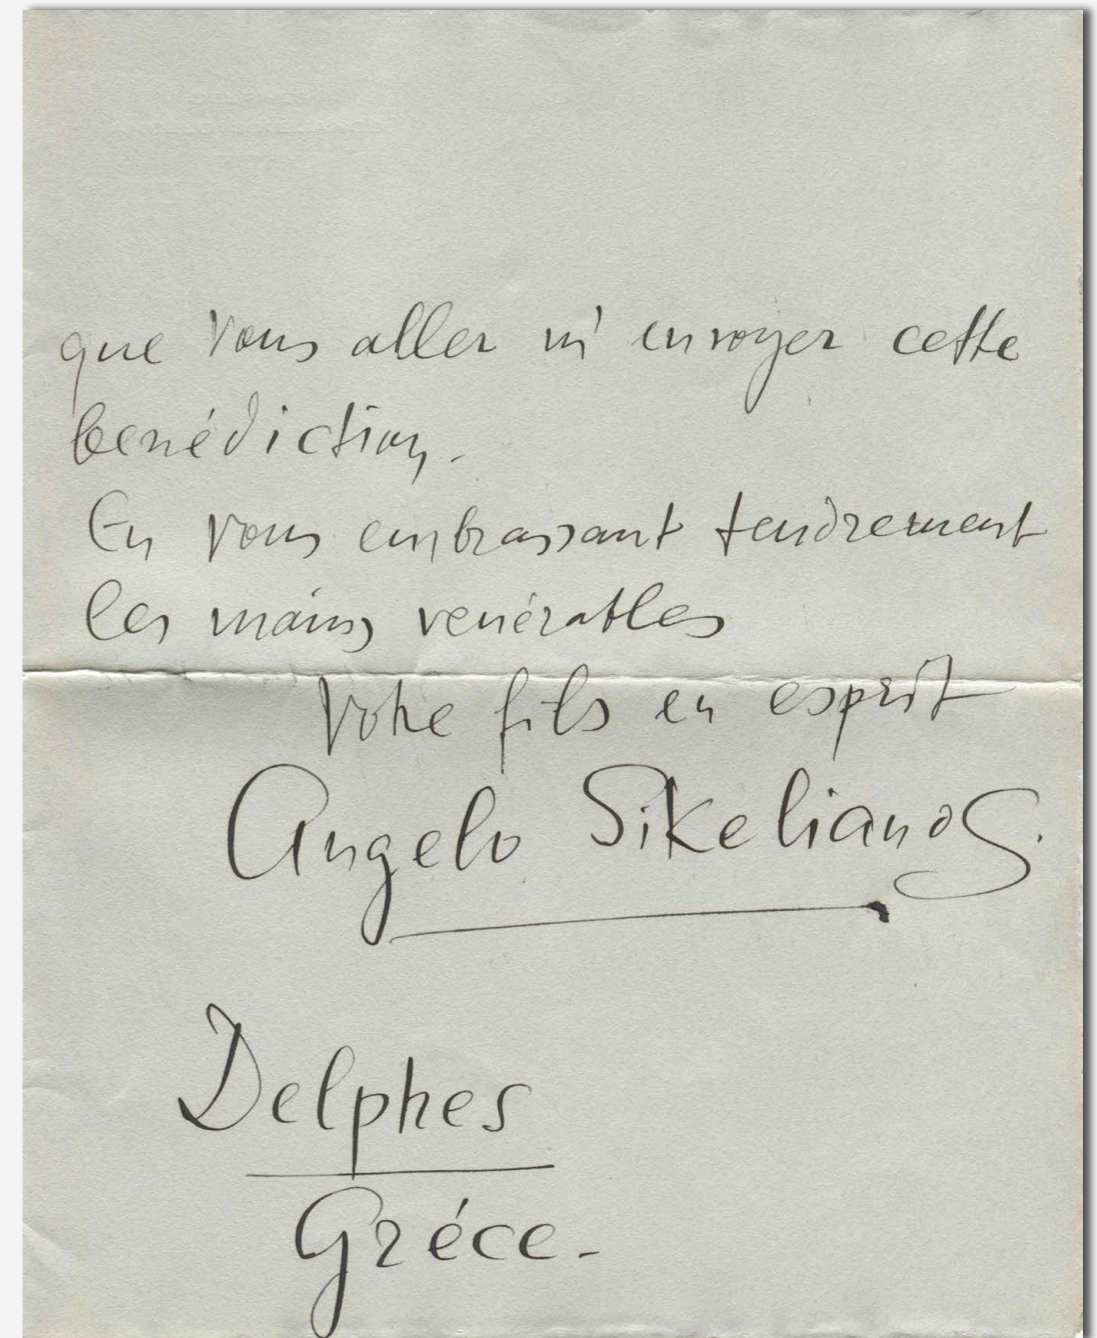 que vous aller m'envoyer cette
bénédiction.
En vous embrassant tendrement
les mains vénérables
Votre fils en esprit
Angelo Sikelianos.
Delphes
Gréce.